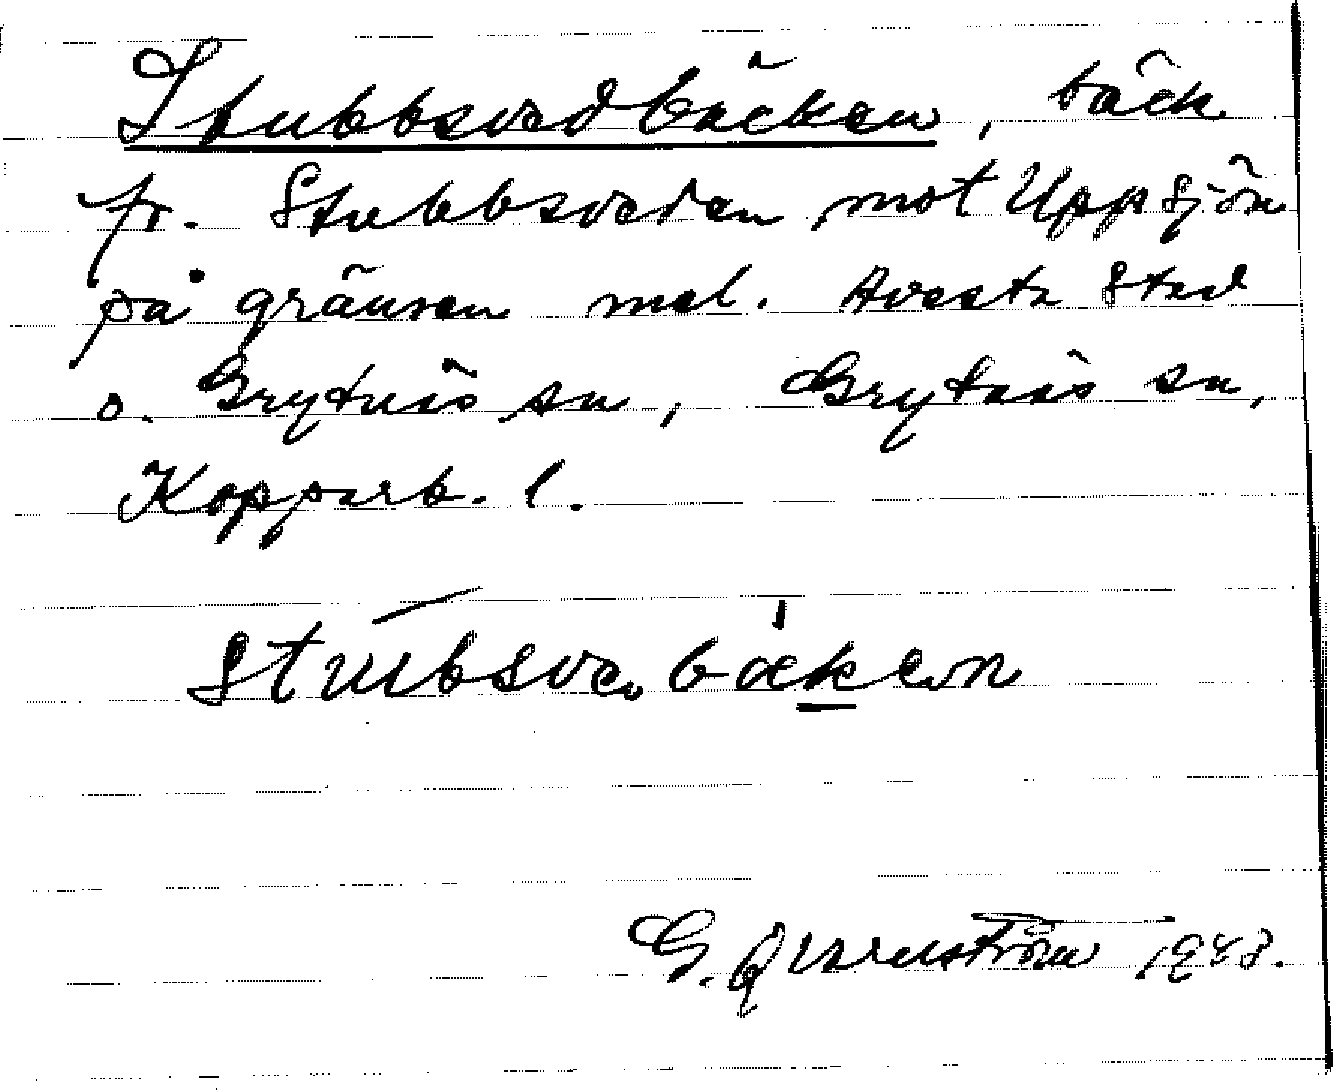 Stubbsvedbäcken, bäck
fr. Stubbsveden mot Uppsjön
på gränsen mel. Avesta stad
o. Grytnäs sn, Grytnäs sn,
Kopparb. l.
G. Qvarnström 1948.